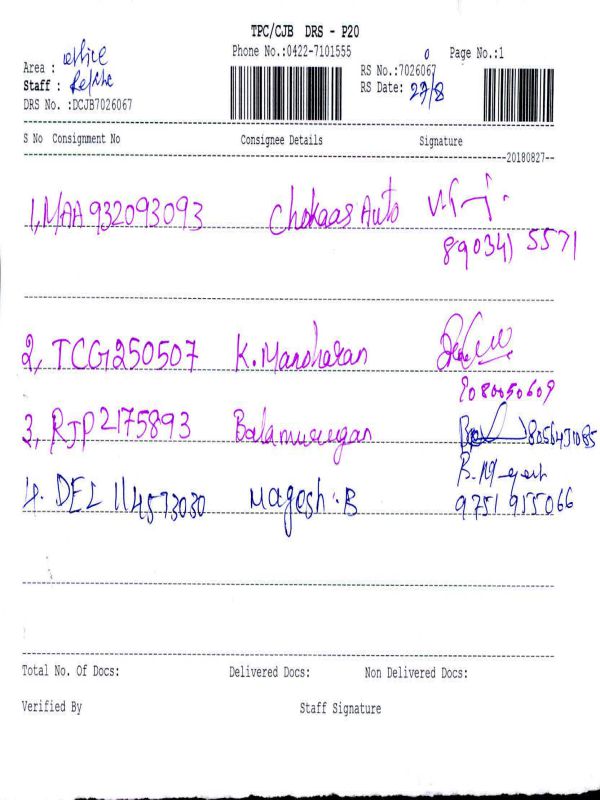 TPC/CJB DRS - P20
Phone No.:0422-7101555
0 Page No.:1
Area : office
Staff :
RS No.:7026067
RS Date: 27/8
DRS No. :DCJB7026067
S No Consignment No Consignee Details Signature
20180827
1, MAA 932093093 Chokaas Auto
89034) 5571
2, TCG250507 K. Manoharan
9080050609
3, RJP2175893 Balamurugan 8056431085
4. DEL 114573030 Magesh.B
9751 955066
Total No. Of Docs: Delivered Docs: Non Delivered Docs:
Verified By Staff Signature